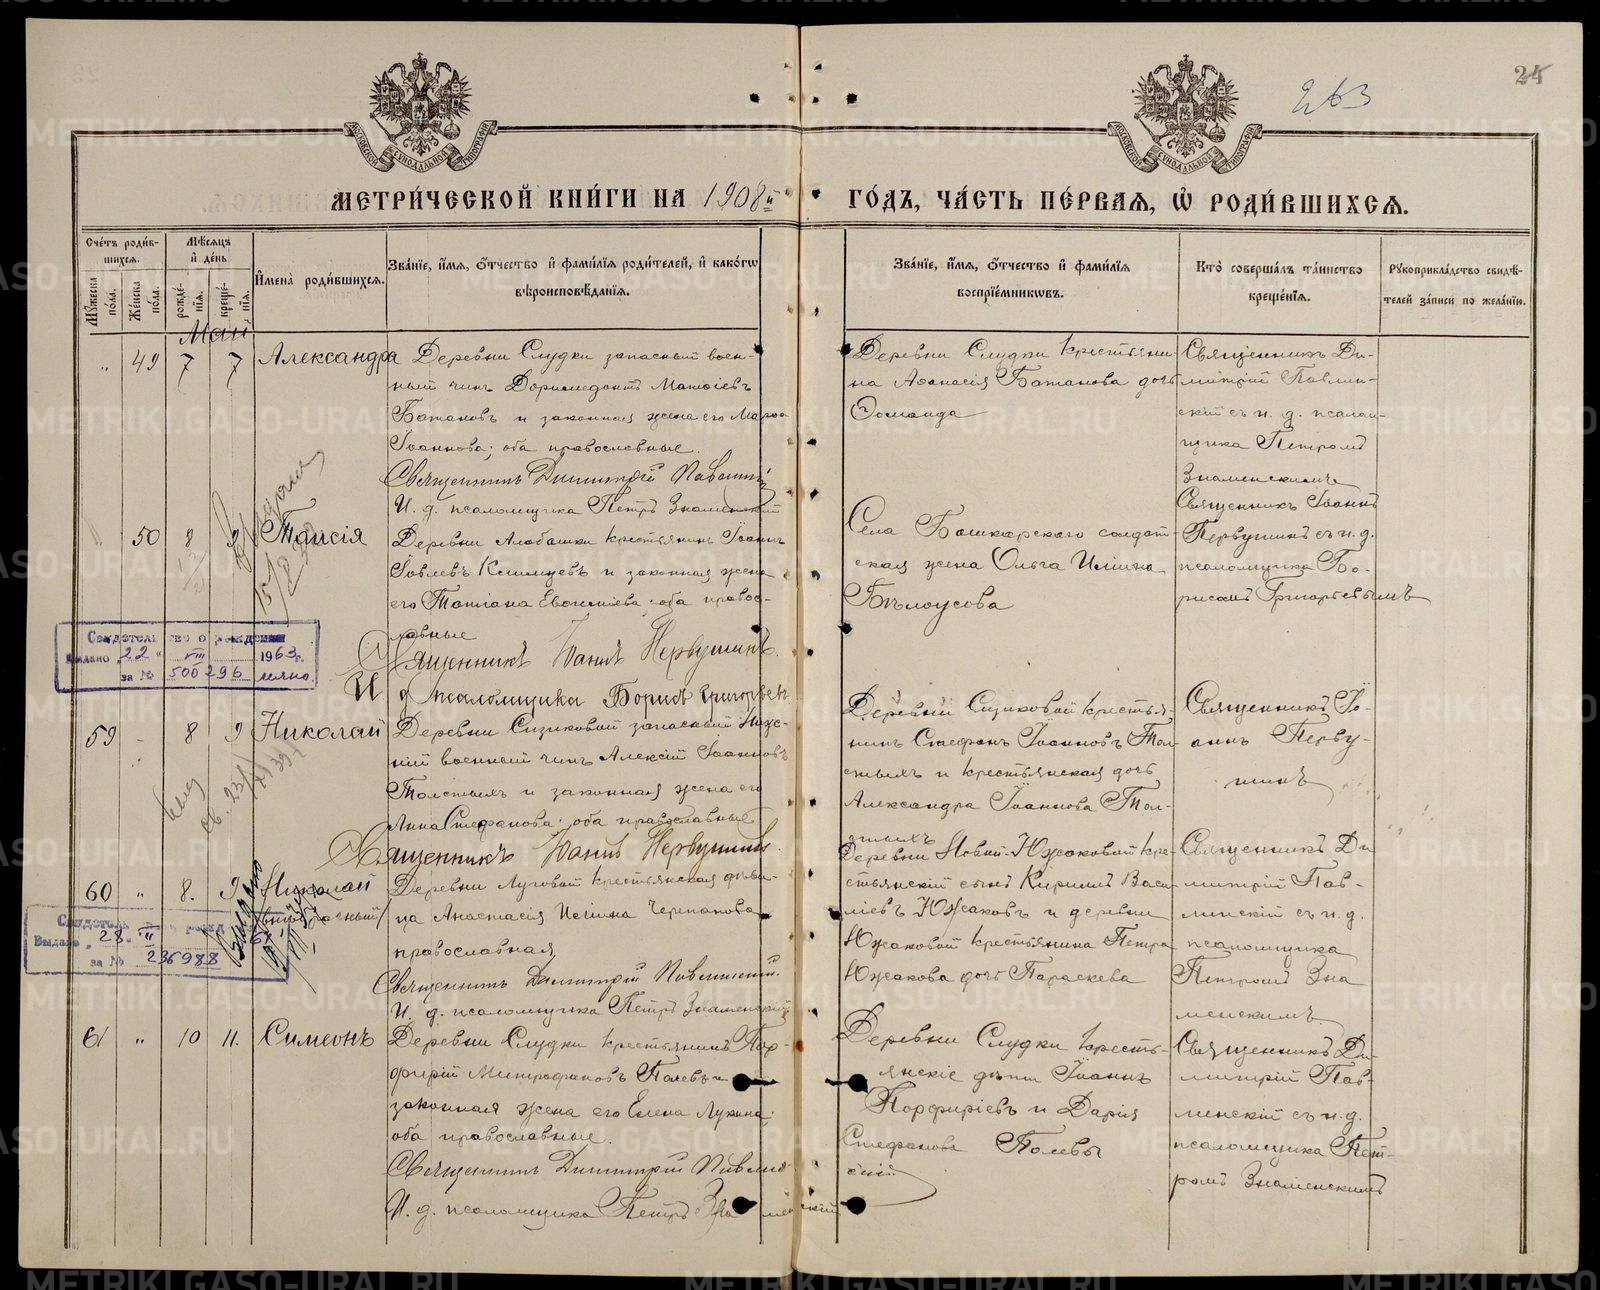 263
24
МОСКОВСКОЙ СѴНОДАЛЬНОЙ ТИПОГРАФІИ
МОСКОВСКОЙ СѴНОДАЛЬНОЙ ТИПОГРАФІИ
МЕТРИ́ЧЕСКОЙ КНИ́ГИ НА 1908й
ГО́ДЪ, ЧА́СТЬ ПЕ́РВАѦ, Ѡ҆ РОДИ́ВШИХСѦ.
Сче́тъ роди́вшихсѧ.
Мꙋ́жеска по́ла.
Же́нска по́ла.
Мѣ́сѧцъ и҆ де́нь
рожде́нїѧ.
креще́нїѧ.
И҆мена̀ роди́вшихсѧ.
Зва́нїе, и҆́мѧ, ѻ҆́тчество и҆ фами́лїѧ роди́телей, и҆ како́гѡ вѣроисповѣ́данїѧ.
Зва́нїе, и҆́мѧ, ѻ҆́тчество и҆ фами́лїѧ воспрїе́мникѡвъ.
Кто̀ соверша́лъ та́инство креще́нїѧ.
Рꙋкоприкла́дство свидѣ́телей за́писи по жела́нїю.
Май
" 49 7 7 Александра
Деревни Слудки запасный воен-
ный чинъ Доримедонтъ Матѳіевъ
Батановъ и законная жена его Марѳа
Іоаннова; оба православные.
Священникъ Димитрій Павлинскій
И. д. псаломщика Петръ Знаменскій
Деревни Слудки крестьяни-
на Аѳанасія Батанова дочь
Священникъ Ди-
митрій Павлин-
скій съ и. д. псалом-
щика Петромъ
Знаменскимъ
50 8 9 Таисія
Деревни Алабашки крестьянинъ Іоаннъ
и законная жена
его Татіана Евгеніева; оба право-
славные
Священникъ Іоаннъ Первушинъ.
И д псаломщика Борисъ Григорьевъ
Села Башкарского солдат-
ская жена Ольга Ильина
Бѣлоусова
Священникъ Іоаннъ
Первушинъ съ и. д.
псаломщика Бо-
рисомъ Григорьевымъ
Свидетельство о рождении
Выдано „22“ VIII 1963 г.
за № 500296
59 - 8 9 Николай
Деревни Сизиковой запасный ниж-
ній военный чинъ Алексій Іоанновъ
Толстыхъ и законная жена его
Анна Стефанова; оба православные
Священникъ Іоаннъ Первушинъ.
Деревни Сизиковой крестья-
нинъ Стефанъ Іоанновъ Тол-
стыхъ и крестьянская дочь
Александра Іоаннова Тол-
стыхъ
Священникъ Іо-
аннъ Перву-
шинъ
60 " 8. 9 Николай
(внебрачный)
Деревни Луговой крестьянская дѣви-
ца Анастасія Ильина Черепанова
православная
Священникъ Димитрій Павлинскій.
И. д. псаломщика Петръ Знаменскій
Деревни Новой-Южаковой кре-
стьянскій сынъ Кириллъ Васи-
ліевъ Южаковъ и деревни
Южаковой крестьянина Петра
Южакова дочь Параскева
Священникъ Ди
митрій Пав-
линскій съ и. д.
псаломщика
Петромъ Зна
менскимъ
Выдано „28“
за № 236988
61 " 10 11. Симеонъ
Деревни Слудки крестьянинъ Пор-
фирій Митрофановъ Палевъ и
законная жена его Елена Лукина;
оба православные.
Священникъ Димитрій Павлинскій
И. д. псаломщика Петръ Знаменскій
Деревни Слудки кресть-
янскіе дѣти Іоаннъ
Порфиріевъ и Дарія
Стефанова Полевы
Священникъ Ди-
митрій Пав-
линскій съ и. д.
псаломщика Пет-
ромъ Знаменскимъ
METRIKI.GASO-URAL.RU